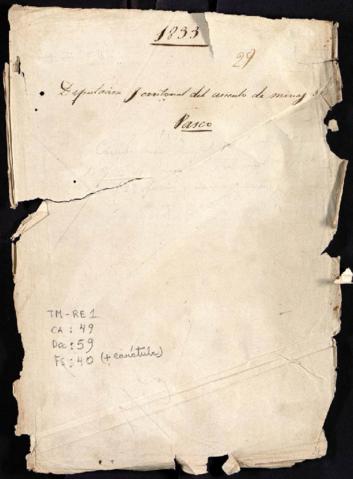 1833
29
Diputacion Territorial del asiento de minas de
Pasco
TM-RE1
CA: 49
Do: 59
Fs: 40 (+ carátula)